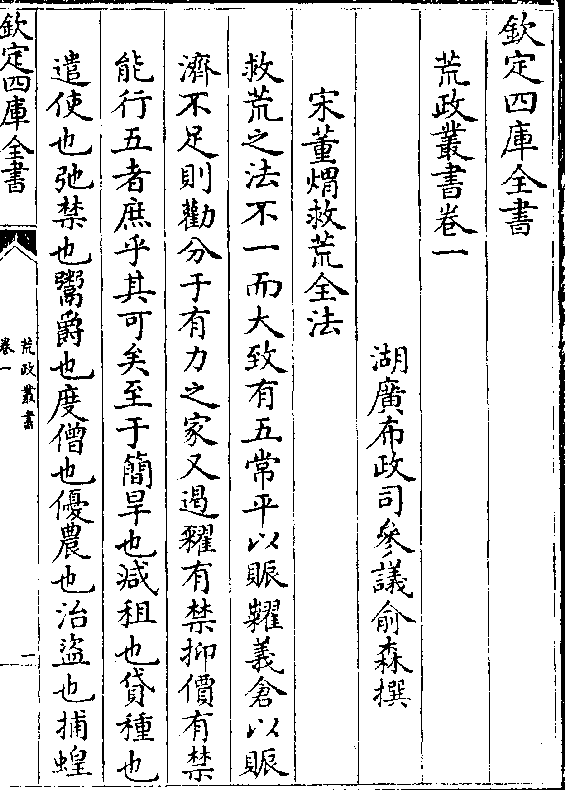 欽定四庫全書
荒政叢書卷一
湖廣布政司參議俞森撰
宋董煟救荒全法
救荒之法不一而大致有五常平以賑糶義倉以賑
濟不足則勸分于有力之家又遏糴有禁抑價有禁
能行五者庶乎其可矣至于簡旱也減租也貸種也
遣使也弛禁也鬻爵也度僧也優農也治盜也捕蝗
欽定四庫全書
荒政叢書
卷一
一